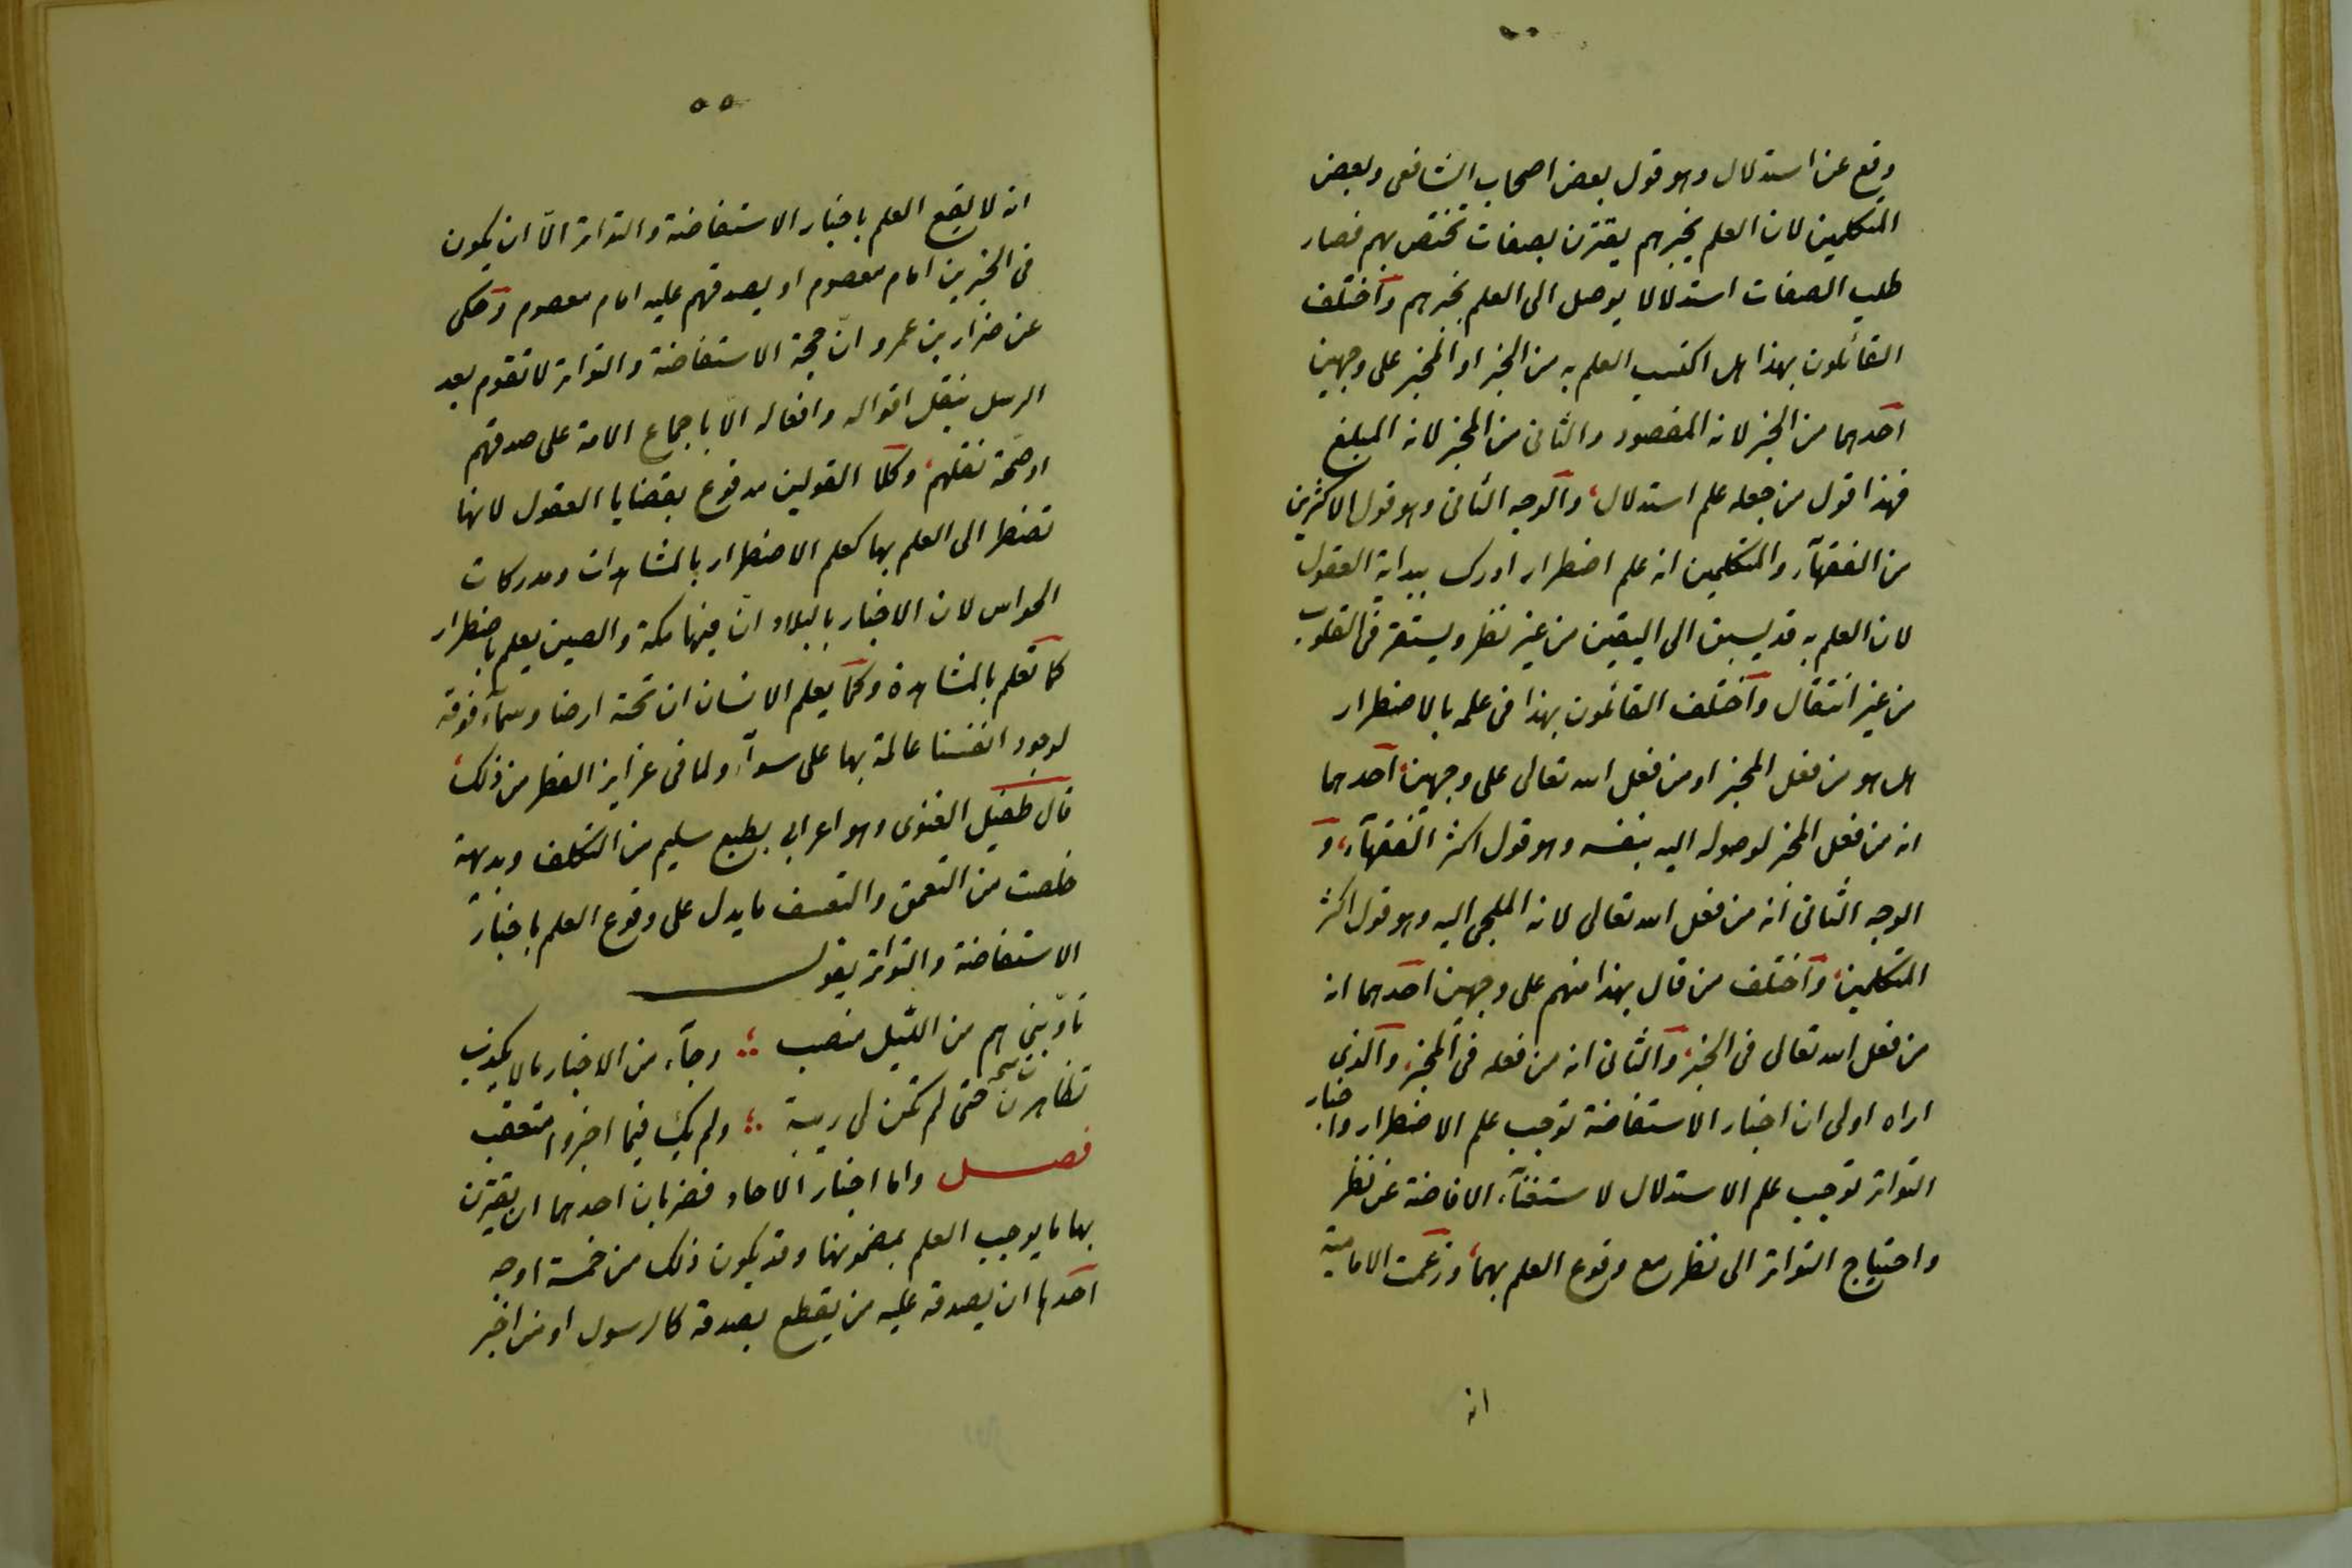 وقع عن استدلال وهو قول بعض اصحاب الشافعى وبعض
المتكلمين لان العلم بخبرهم يقترن بصفات تختص بهم فصار
طلب الصفات استدلالا يوصل الى العلم بخبرهم واختلف
القائلون بهذا هل اكتسب العلم به من الخبر او المخبر على وجهين
احدهما من الخبر لانه المقصود والثانى من المخبر لانه المبلغ
فهذا قول من جعله علم استدلال، والوجه الثانى وهو قول الاكثرين
من الفقهآء والمتكلمين انه علم اضطرار ادرك ببداية العقول
لان العلم به قد يسبق الى اليقين من غير نظر ويستقر فى القلوب
من غير انتقال واختلف القائلون بهذا فى علمه بالاضطرار
هل هو من فعل المخبر او من فعل الله تعالى على وجهين، احدهما
انه من فعل المخبر لوصوله اليه بنفسه وهو قول اكثر الفقهآء، و
الوجه الثانى انه من فعل الله تعالى لانه الملجى اليه وهو قول اكثر
المتكلمين، واختلف من قال بهذا منهم على وجهين احدهما انه
من فعل الله تعالى فى الخبر، والثانى انه من فعله فى المخبر، والذى
اراه اولى ان اخبار الاستفاضة توجب علم الاضطرار واخبار
التواتر توجب علم الاستدلال لاستغنآء الافاضة عن نظر
واحتياج التواتر الى نظر مع وقوع العلم بهما، وزعمت الامامية
انه
٥٥
انه لا يقع العلم باخبار الاستفاضة والتواتر الّا ان يكون
فى المخبرين امام معصوم او يصدقهم عليه امام معصوم وحكى
عن ضرار بن عمرو انّ حجة الاستفاضة والتواتر لا تقوم بعد
الرسل بنقل اقواله وافعاله الّا باجماع الامة على صدقهم
او صحّة نقلهم، وكلا القولين مدفوع بقضايا العقول لانها
تضطر الى العلم بها كعلم الاضطرار بالمشاهدات ومدركات
الحواس لان الاخبار بالبلاد انّ فيها مكة والصين يعلم باضطرار
كما تعلم بالمشاهدة وكما يعلم الانسان ان تحته ارضا وسمآء فوقه
لوجود انفسنا عالمة بها على سوآء ولما فى غرايز الفطر من ذلك،
قال طفيل الغنوى وهو اعرابى بطبع سليم من التكلف وبديهة
خلصت من التعمق والتعسف ما يدل على وقوع العلم باخبار
الاستفاضة والتواتر بقوله
تأوّبنى هم من الليل منصب ؛ وجآء من الاخبار ما لا يكذب
تظاهرن حتى لم تكن لى ريبة ؛ ولم يك فيما اخبروا متعقب
فصل واما اخبار الآحاد فضربان احدهما ان يقترن
بها ما يوجب العلم بمضمونها وقد يكون ذلك من خمسة اوجه
احدها ان يصدقه عليه من يقطع بصدقه كالرسول او من اخبر